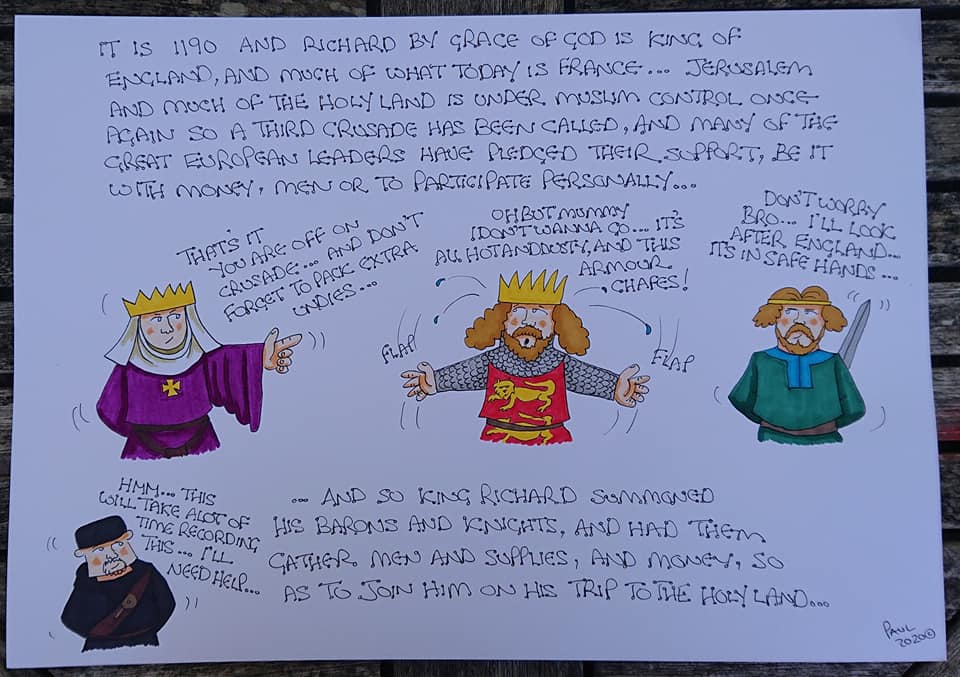 IT IS 1190 AND RICHARD BY GRACE OF GOD IS KING OF
ENGLAND, AND MUCH OF WHAT TODAY IS FRANCE... JERUSALEM
AND MUCH OF THE HOLY LAND IS UNDER MUSLIM CONTROL ONCE
AGAIN SO A THIRD CRUSADE HAS BEEN CALLED, AND MANY OF THE
GREAT EUROPEAN LEADERS HAVE PLEDGED THEIR SUPPORT, BE IT
WITH MONEY, MEN OR TO PARTICIPATE PERSONALLY...
THAT'S IT
YOU ARE OFF ON
CRUSADE... AND DON'T
FORGET TO PACK EXTRA
UNDIES...
OH BUT MUMMY
I DON'T WANNA GO... IT'S
ALL HOT AND DUSTY, AND THIS
ARMOUR
CHAFES!
FLAP
FLAP
DON'T WORRY
BRO... I'LL LOOK
AFTER ENGLAND...
IT'S IN SAFE HANDS...
HMM... THIS
WILL TAKE A LOT OF
TIME RECORDING
THIS... I'LL
NEED HELP...
... AND SO KING RICHARD SUMMONED
HIS BARONS AND KNIGHTS, AND HAD THEM
GATHER MEN AND SUPPLIES, AND MONEY, SO
AS TO JOIN HIM ON HIS TRIP TO THE HOLY LAND...
PAUL
2020©